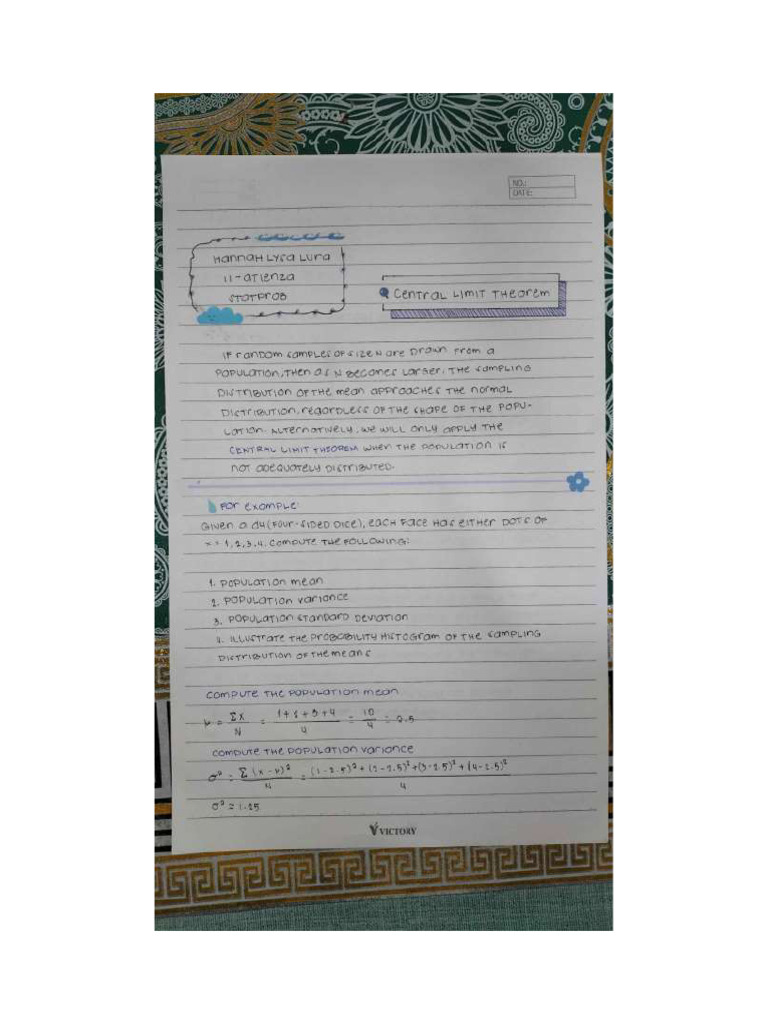 NO.:
DATE:
HannaH Lysa Luna
11-atienza
statprob
Central Limit Theorem
If random samples of size n are drawn from a
population, then as n becomes larger, the sampling
distribution of the mean approaches the normal
distribution, regardless of the shape of the popu-
lation. Alternatively, we will only apply the
central limit theorem when the population is
not adequately distributed.
For example:
Given a d4 (four-sided dice), each face has either dots of
x = 1, 2, 3, 4. Compute the following:
1. Population mean
2. Population variance
3. Population standard deviation
4. Illustrate the probability histogram of the sampling
distribution of the means
Compute the population mean
μ = Σx / N = 1+2+3+4 / 4 = 10 / 4 = 2.5
Compute the population variance
σ² = Σ (x-μ)² / N = (1-2.5)² + (2-2.5)² + (3-2.5)² + (4-2.5)² / 4
σ² = 1.25
VICTORY